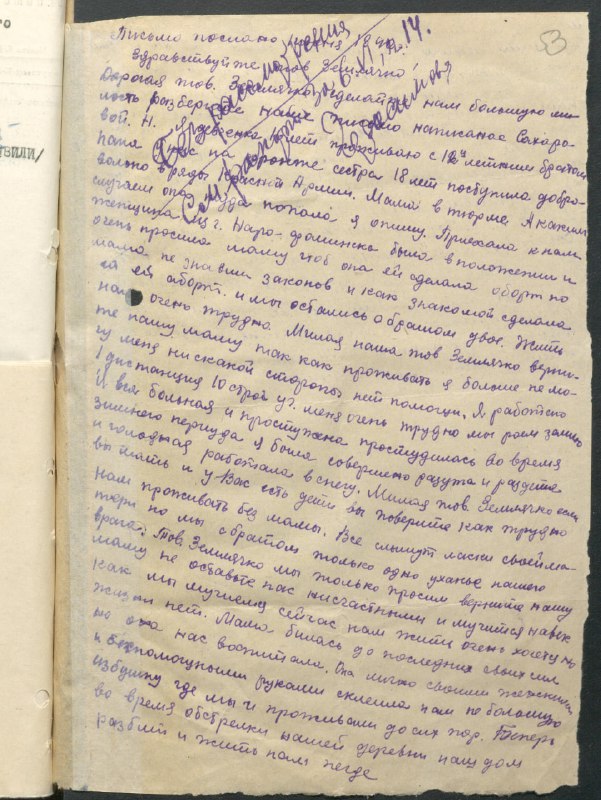 го
ТВИЛИ/
53
Письмо послано
Здравствуйте тов Землячко!
Дорогая тов. Землячко сделайте нам большую ми-
лость разберите наше (письмо написанае Сахаро-
вой. Н.
Я девченка лет проживаю с 12и летним братом
папа у нас на фронте сестра 18 лет поступила добро-
вольно в ряды Красной Армии. Мама в тюрме. А каким
случаем она туда попала я опишу. Приехала к нам
женщина из г. Наро-фоминска была в положении и
очень просила маму чтоб она ей сделала оборт но
мама не знавши законов и как знакомой сделала
ей оборт. и мы остались с братом двое. Жить
нам очень трудно. Милая наша тов Землячко верни-
те нашу маму так как проживать я больше не мо-
гу меня нискакой стороны нет помощи. Я работаю
1 дистанция 10 строй уч. меня очень трудно мы роем землю
и вся больная и простужена простудилась во время
зимнего периуда я была совершено разута и раздета
и голодная работала в снегу. Милая тов. Землячко если
вы мать и у Вас есть дети вы поверите как трудно
нам проживать без мамы. Все слышут ласки своей ма-
тери но мы с братом только одно уханье нашего
врага. Тов Землячко мы только просим верните нашу
маму не оставьте нас нисчастными и мучится навек
как мы мучиемся сейчас нам жить очень хочется но
жизни нет. Мама билась до последних своих сил
но она нас воспитала. Она лично своими женскими
и безпомощными руками склеила нам не большую
избушку где мы и проживали до сих пор. Теперь
во время обстрелки нашей деревни наш дом
разбит и жить нам негде
Без рассмотрения
6.XI, п. 14.